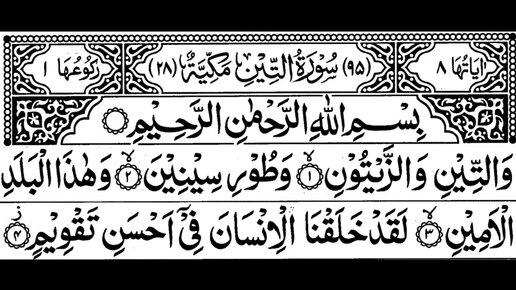 اٰیَاتُهَا ٨ (٩٥) سُوْرَةُ التِّيْنِ مَكِّيَّةٌ (٢٨) رُكُوْعُهَا ١
بِسْمِ اللّٰهِ الرَّحْمٰنِ الرَّحِيْمِ
وَالتِّيْنِ وَالزَّيْتُوْنِ ۙ﴿١﴾ وَطُوْرِ سِيْنِيْنَ ۙ﴿٢﴾ وَهٰذَا الْبَلَدِ
الْاَمِيْنِ ۙ﴿٣﴾ لَقَدْ خَلَقْنَا الْاِنْسَانَ فِيْۤ اَحْسَنِ تَقْوِيْمٍ ؗ﴿٤﴾